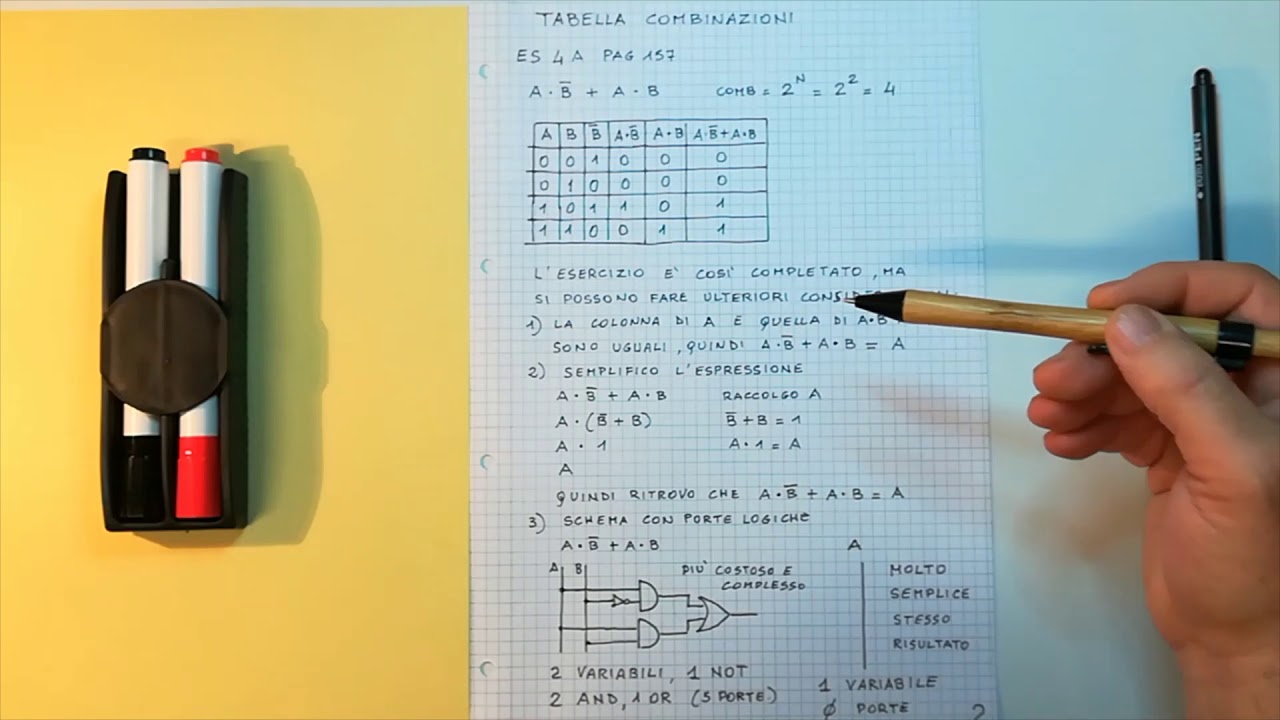 TABELLA COMBINAZIONI
ES 4 A PAG 157
A · B̅ + A · B COMB = 2^N = 2^2 = 4
A B B̅ A·B̅ A·B A·B̅+A·B
0 0 1 0 0 0
0 1 0 0 0 0
1 0 1 1 0 1
1 1 0 0 1 1
L'ESERCIZIO E' COSI' COMPLETATO, MA
SI POSSONO FARE ULTERIORI
1) LA COLONNA DI A E QUELLA DI A·B
SONO UGUALI, QUINDI A·B̅ + A·B = A
2) SEMPLIFICO L'ESPRESSIONE
A·B̅ + A·B RACCOLGO A
A·(B̅ + B) B̅+B = 1
A · 1 A·1 = A
A
QUINDI RITROVO CHE A·B̅ + A·B = A
3) SCHEMA CON PORTE LOGICHE
A·B̅ + A·B A
A B PIU' COSTOSO E
COMPLESSO
MOLTO
SEMPLICE
STESSO
RISULTATO
2 VARIABILI, 1 NOT
2 AND, 1 OR (5 PORTE)
1 VARIABILE
0 PORTE 2
PEN